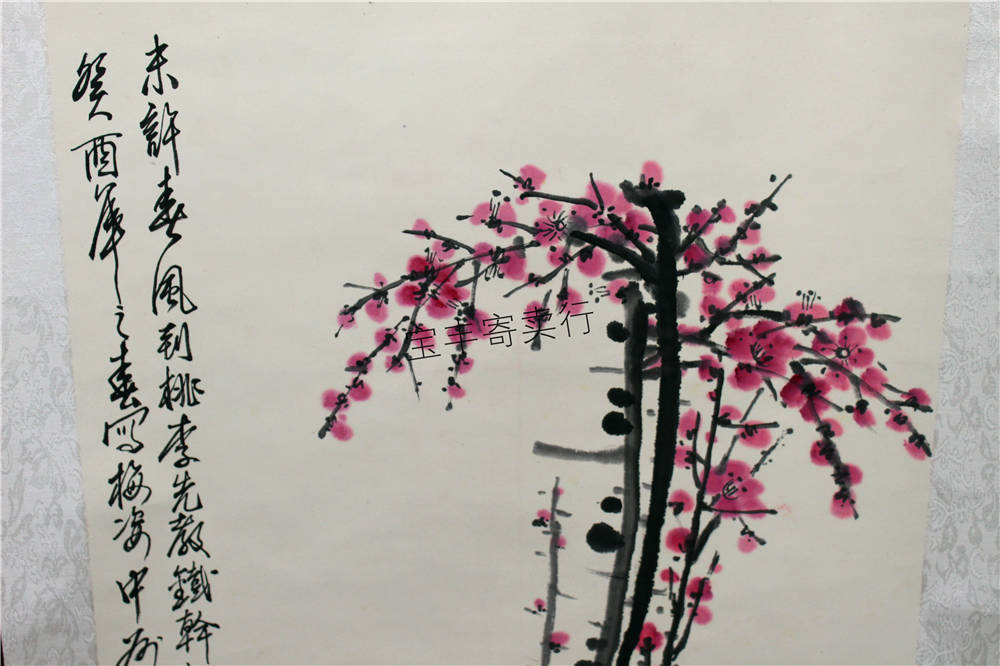 未許春風到桃李先教鐵幹
癸酉年之春寫梅姿中州
宝丰寄卖行